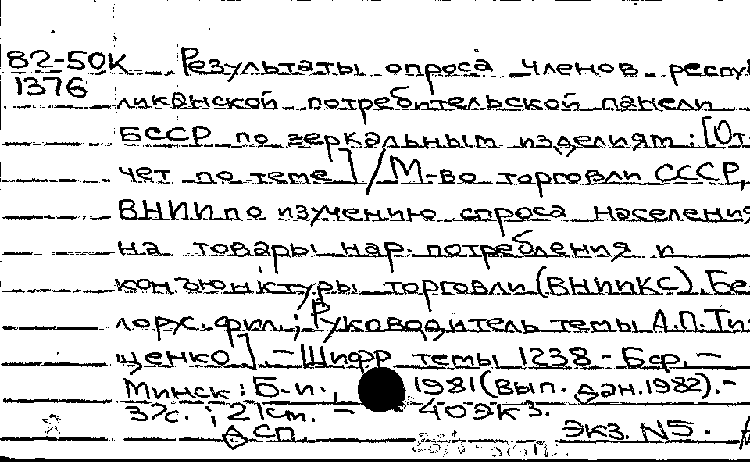 82-50К Результаты опроса членов респуб
1376
ликанской потребительской панели
БССР по зеркальным изделиям: [От
чет по теме] / М-во торговли СССР,
ВНИИ по изучению спроса населения
на товары нар. потребления и
конъюнктуры торговли (ВНИИКС). Бе
лорус. фил.; Руководитель темы А.П. Ти
щенко] - Шифр темы 1238-Бср. -
Минск: Б.и., 1981 (вып. дан. 1982). -
37с.; 21см. - 40экз.
ДСП экз. N5.